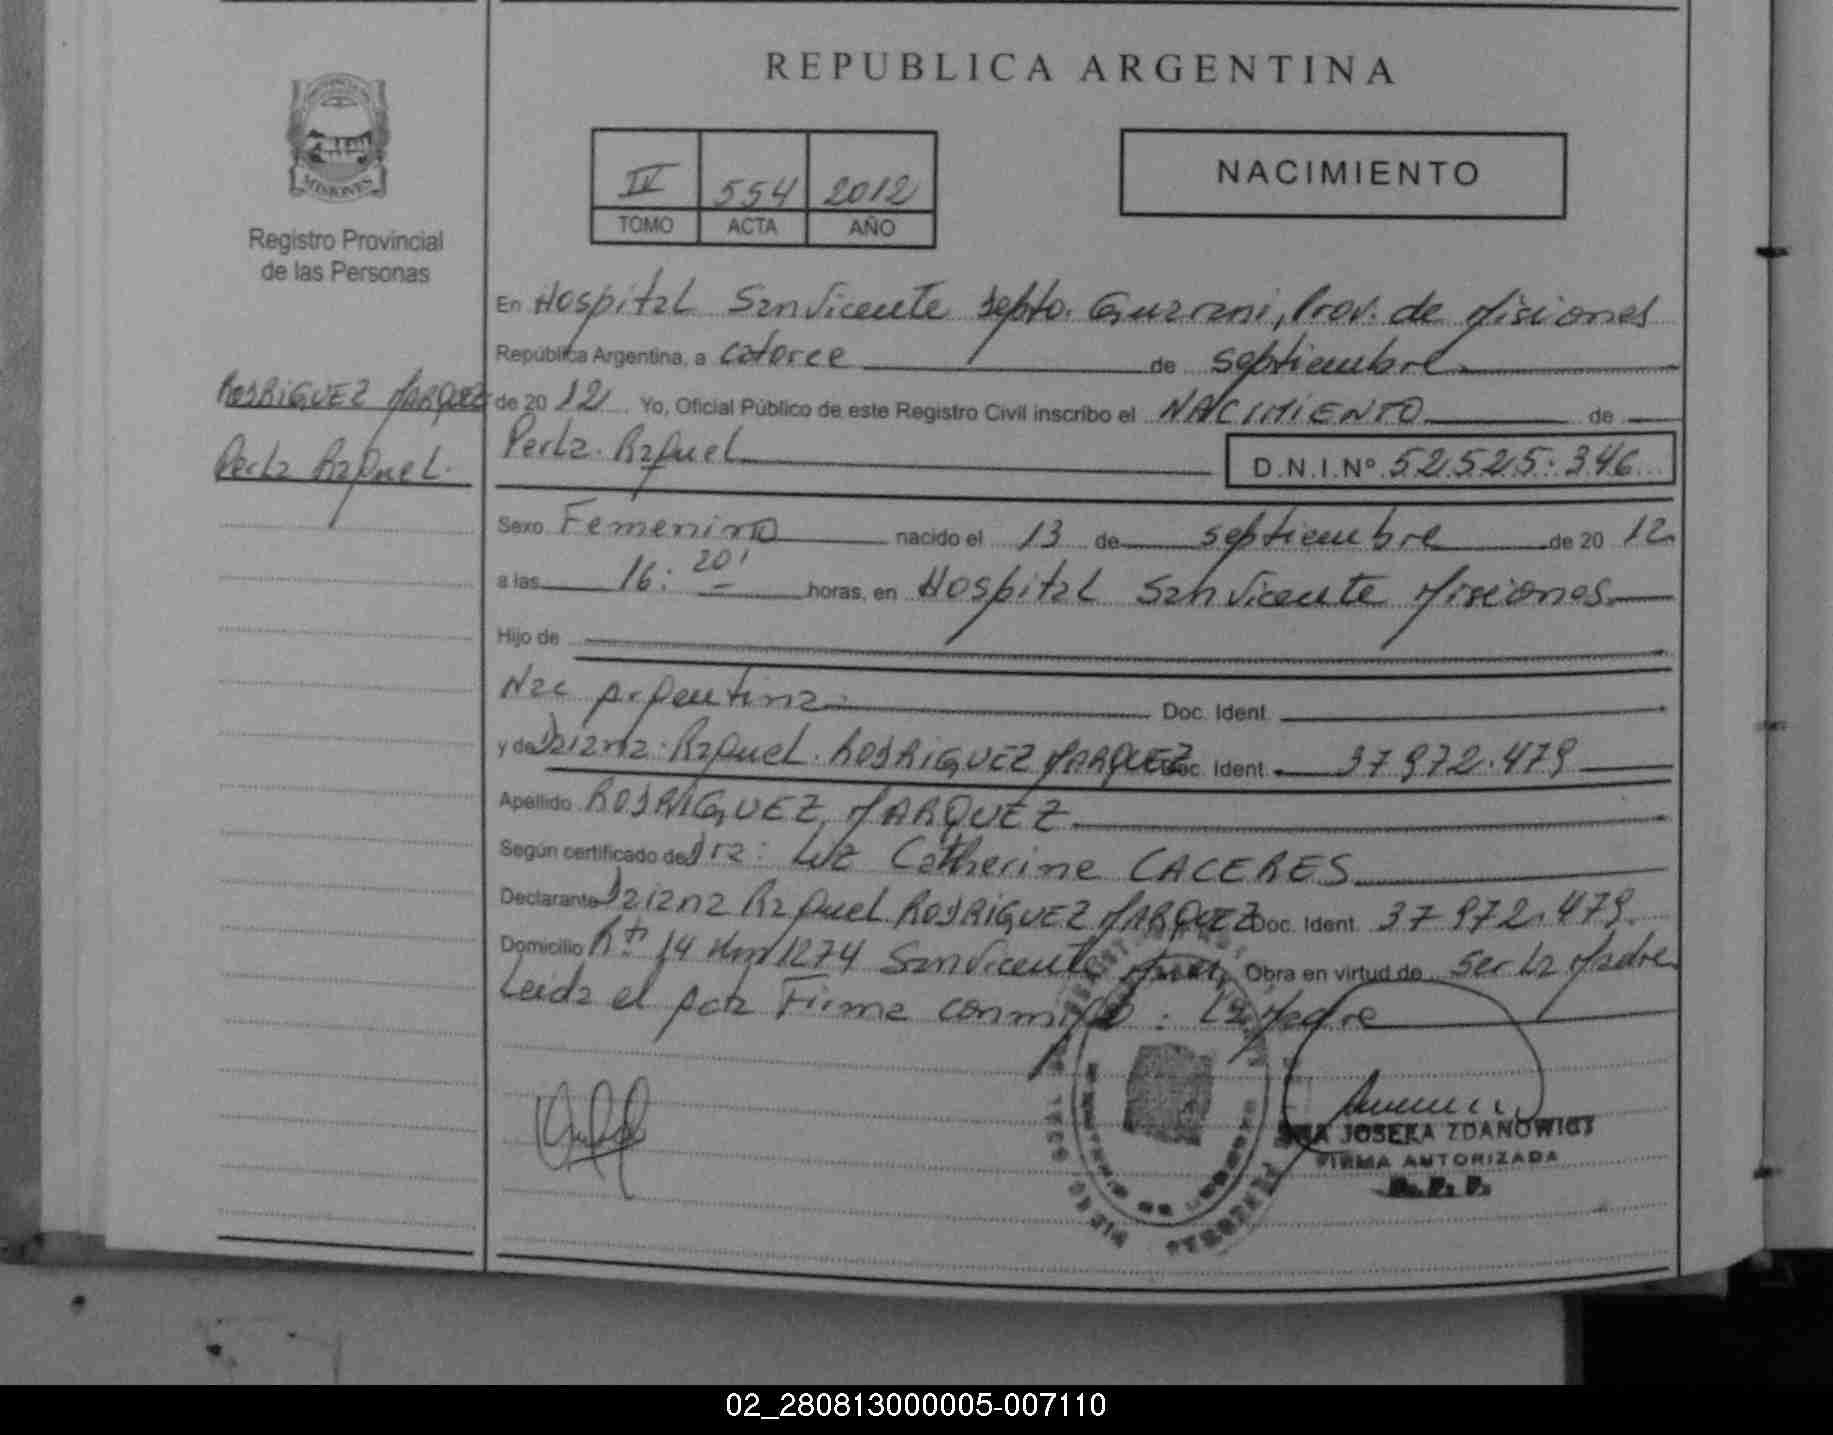 REPUBLICA ARGENTINA
MISIONES
Registro Provincial
de las Personas
IV 554 2012
TOMO ACTA AÑO
NACIMIENTO
RODRIGUEZ MARQUEZ
Perla Raquel.
En Hospital San Vicente Depto. Guarani, Prov. de Misiones
República Argentina, a catorce de septiembre
de 20 12 Yo, Oficial Público de este Registro Civil inscribo el NACIMIENTO de
Perla Raquel
D.N.I.Nº 52.525.346
Sexo Femenino nacido el 13 de septiembre de 20 12
a las 16:20' horas, en Hospital San Vicente Misiones
Hijo de
Nac Argentina Doc. Ident.
y de Daiana Raquel RODRIGUEZ MARQUEZ Doc. Ident. 37.972.479
Apellido RODRIGUEZ MARQUEZ
Según certificado de Dra: Luz Catherine CACERES
Declarante Daiana Raquel RODRIGUEZ MARQUEZ Doc. Ident. 37.972.479
Domicilio Rta 14 Km 1274 San Vicente Obra en virtud de ser la Madre
Leida el Acta Firma conmigo: La Madre
JOSEFA ZDANOWICZ
FIRMA AUTORIZADA
R. P. P.
02_280813000005-007110